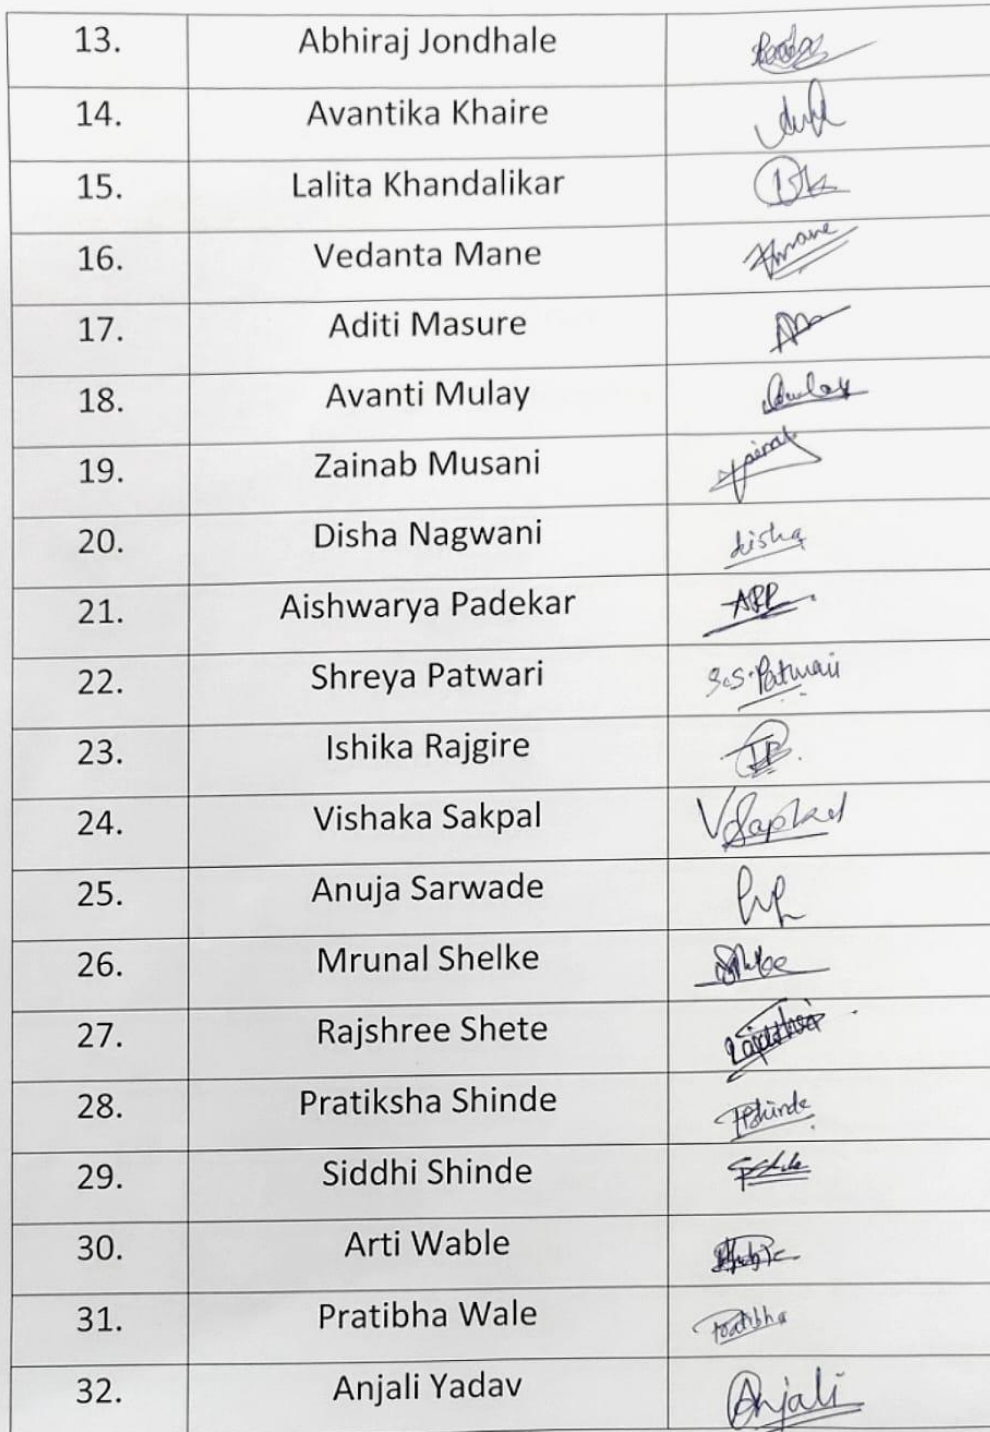 13. Abhiraj Jondhale
14. Avantika Khaire
15. Lalita Khandalikar
16. Vedanta Mane
17. Aditi Masure
18. Avanti Mulay
19. Zainab Musani
20. Disha Nagwani disha
21. Aishwarya Padekar APP
22. Shreya Patwari S.S.Patwari
23. Ishika Rajgire
24. Vishaka Sakpal
25. Anuja Sarwade
26. Mrunal Shelke
27. Rajshree Shete
28. Pratiksha Shinde PShinde
29. Siddhi Shinde
30. Arti Wable
31. Pratibha Wale Pratibha
32. Anjali Yadav Anjali